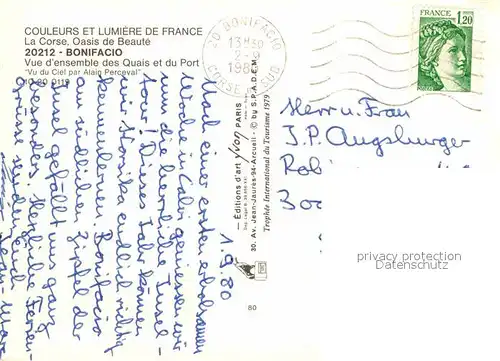 COULEURS ET LUMIÈRE DE FRANCE
La Corse, Oasis de Beauté
20212 - BONIFACIO
Vue d'ensemble des Quais et du Port
"Vu du Ciel par Alain Perceval"
10 20 0119
20 BONIFACIO
13H30
2-9
CORSE DU SUD
1,20
1.9.80
Nach einer ersten erholsamen
Woche in Calvi geniessen wir
nun die herrliche Insel-
tour! Dieses Jahr können
wir Korsika endlich richtig
kennenlernen. Bonifacio
am südlichen Zipfel der
Insel gefällt uns ganz
besonders. Herzliche Ferien-
grüsse senden Euch
- Éditions d'art yvon PARIS
30, Av. Jean-Jaurès-94-Arcueil - © by S.P.A.D.E.M.
Trophée International du Tourisme 1979
80
Herrn u. Frau
J. P. Augsburger
Rob
300
privacy protection
Datenschutz